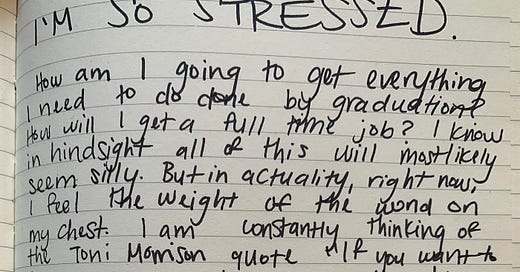 I'M SO STRESSED.
How am I going to get everything
I need to do done by graduation?
How will I get a full time job? I know
in hindsight all of this will most likely
seem silly. But in actuality, right now,
I feel the weight of the world on
my chest. I am constantly thinking of
the Toni Morrison quote "If you want to